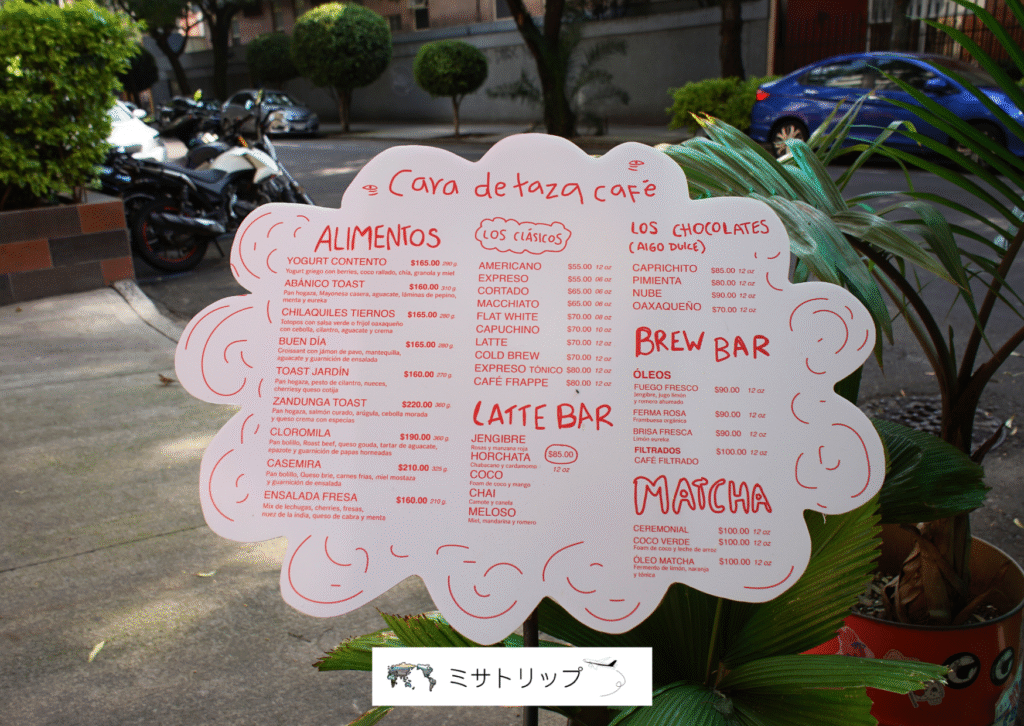 Cara de taza café
ALIMENTOS
YOGURT CONTENTO $165.00 290 g.
Yogurt griego con berries, coco rallado, chía, granola y miel
ABÁNICO TOAST $160.00 310 g.
Pan hogaza, Mayonesa casera, aguacate, láminas de pepino,
menta y eureka
CHILAQUILES TIERNOS $165.00 280 g.
Totopos con salsa verde o frijol oaxaqueño
con cebolla, cilantro, aguacate y crema
BUEN DÍA $165.00 280 g.
Croissant con jámon de pavo, mantequilla,
aguacate y guarnición de ensalada
TOAST JARDÍN $160.00 270 g.
Pan hogaza, pesto de cilantro, nueces,
cherriesy queso cotija
ZANDUNGA TOAST $220.00 360 g.
Pan hogaza, salmón curado, arúgula, cebolla morada
y queso crema con especias
CLOROMILA $190.00 360 g.
Pan bolillo, Roast beef, queso gouda, tartar de aguacate,
epazote y guarnición de papas horneadas
CASEMIRA $210.00 325 g.
Pan bolillo, Queso brie, carnes frias, miel mostaza
y guarnición de ensalada
ENSALADA FRESA $160.00 210 g.
Mix de lechugas, cherries, fresas,
nuez de la india, queso de cabra y menta
LOS CLÁSICOS
AMERICANO $55.00 12 oz
EXPRESO $55.00 06 oz
CORTADO $65.00 06 oz
MACCHIATO $65.00 06 oz
FLAT WHITE $70.00 08 oz
CAPUCHINO $70.00 10 oz
LATTE $70.00 12 oz
COLD BREW $70.00 12 oz
EXPRESO TÓNICO $80.00 12 oz
CAFÉ FRAPPE $80.00 12 oz
LATTE BAR
JENGIBRE
Rosas y manzana roja
HORCHATA $85.00
Chabacano y cardamomo 12 oz
COCO
Foam de coco y mango
CHAI
Camote y canela
MELOSO
Miel, mandarina y romero
LOS CHOCOLATES
(ALGO DULCE)
CAPRICHITO $85.00 12 oz
PIMIENTA $80.00 12 oz
NUBE $90.00 12 oz
OAXAQUEÑO $70.00 12 oz
BREW BAR
ÓLEOS
FUEGO FRESCO $90.00 12 oz
Jengibre, jugo limón
y romero ahumado
FERMA ROSA $90.00 12 oz
Frambuesa orgánica
BRISA FRESCA $90.00 12 oz
Limón eureka
FILTRADOS $100.00 12 oz
CAFÉ FILTRADO
MATCHA
CEREMONIAL $100.00 12 oz
COCO VERDE $100.00 12 oz
Foam de coco y leche de arroz
ÓLEO MATCHA $100.00 12 oz
Fermento de limón, naranja
y tónica
ミサトリップ